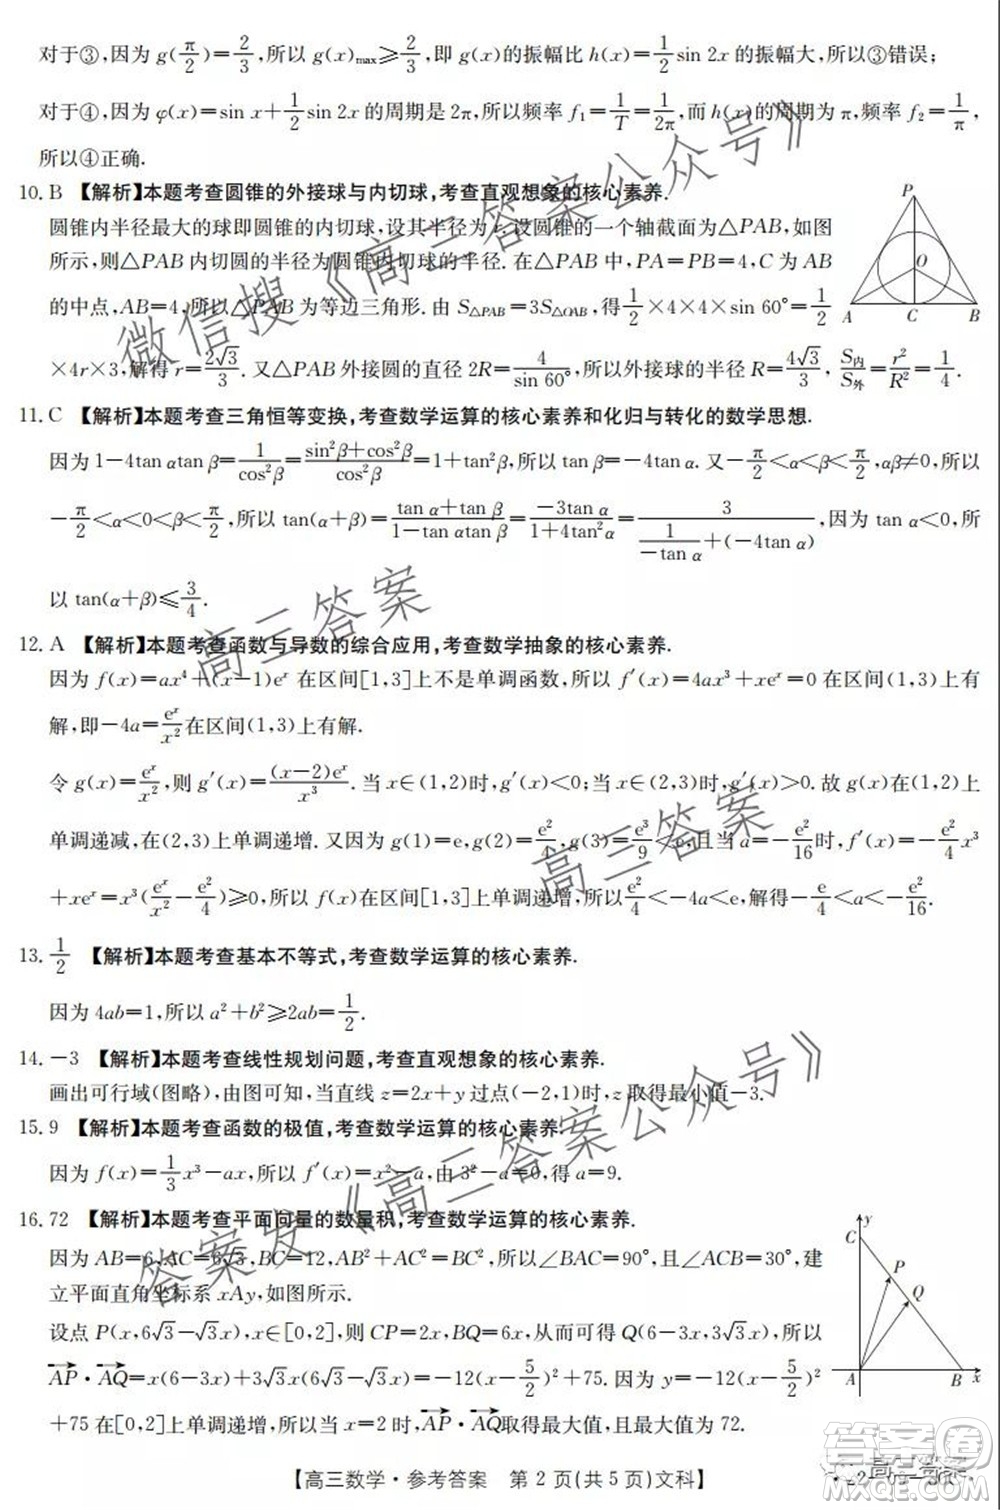 对于③,因为 g(π/2)=2/3,所以 g(x)max≥2/3,即 g(x)的振幅比 h(x)=1/2 sin 2x 的振幅大,所以③错误;
对于④,因为 φ(x)=sin x+1/2 sin 2x 的周期是 2π,所以频率 f₁=1/T=1/2π,而 h(x)的周期为 π,频率 f₂=1/π,
所以④正确.
10. B 【解析】本题考查圆锥的外接球与内切球,考查直观想象的核心素养.
圆锥内半径最大的球即圆锥的内切球,设其半径为 r.设圆锥的一个轴截面为△PAB,如图
所示,则△PAB 内切圆的半径为圆锥内切球的半径.在△PAB 中,PA=PB=4,C 为 AB
的中点,AB=4,所以△PAB 为等边三角形.由 S△PAB=3S△OAB,得1/2×4×4×sin 60°=1/2
×4r×3,解得 r=2√3/3.又△PAB 外接圆的直径 2R=4/sin 60°,所以外接球的半径 R=4√3/3,S内/S外=r²/R²=1/4.
P
O
A C B
11. C 【解析】本题考查三角恒等变换,考查数学运算的核心素养和化归与转化的数学思想.
因为 1-4tan αtan β=1/cos²β=(sin²β+cos²β)/cos²β=1+tan²β,所以 tan β=-4tan α.又-π/2<α<β<π/2,αβ≠0,所以
-π/2<α<0<β<π/2,所以 tan(α+β)=(tan α+tan β)/(1-tan αtan β)=-3tan α/(1+4tan²α)=3/(1/(-tan α)+(-4tan α)),因为 tan α<0,所
以 tan(α+β)≤3/4.
12. A 【解析】本题考查函数与导数的综合应用,考查数学抽象的核心素养.
因为 f(x)=ax⁴+(x-1)eˣ 在区间[1,3]上不是单调函数,所以 f′(x)=4ax³+xeˣ=0 在区间(1,3)上有
解,即-4a=eˣ/x²在区间(1,3)上有解.
令 g(x)=eˣ/x²,则 g′(x)=(x-2)eˣ/x³.当 x∈(1,2)时,g′(x)<0;当 x∈(2,3)时,g′(x)>0.故 g(x)在(1,2)上
单调递减,在(2,3)上单调递增.又因为 g(1)=e,g(2)=e²/4,g(3)=e³/9<e,且当 a=-e²/16时,f′(x)=-e²/4 x³
+xeˣ=x³(eˣ/x²-e²/4)≥0,所以 f(x)在区间[1,3]上单调递增,所以e²/4<-4a<e,解得-e/4<a<-e²/16.
13. 1/2 【解析】本题考查基本不等式,考查数学运算的核心素养.
因为 4ab=1,所以 a²+b²≥2ab=1/2.
14. -3 【解析】本题考查线性规划问题,考查直观想象的核心素养.
画出可行域(图略),由图可知,当直线 z=2x+y 过点(-2,1)时,z 取得最小值-3.
15. 9 【解析】本题考查函数的极值,考查数学运算的核心素养.
因为 f(x)=1/3 x³-ax,所以 f′(x)=x²-a,由 3²-a=0,得 a=9.
16. 72 【解析】本题考查平面向量的数量积,考查数学运算的核心素养.
因为 AB=6,AC=6√3,BC=12,AB²+AC²=BC²,所以∠BAC=90°,且∠ACB=30°,建
立平面直角坐标系 xAy,如图所示.
设点 P(x,6√3-√3x),x∈[0,2],则 CP=2x,BQ=6x,从而可得 Q(6-3x,3√3x),所以
AP·AQ=x(6-3x)+3√3x(6√3-√3x)=-12(x-5/2)²+75.因为 y=-12(x-5/2)²
+75 在[0,2]上单调递增,所以当 x=2 时,AP·AQ取得最大值,且最大值为 72.
y
C
P
Q
A B x
【高三数学·参考答案 第 2 页(共 5 页)文科】
微信搜《高三答案公众号》
高三答案
高三答案
答案发《高三答案公众号》
高三答案
答案圈